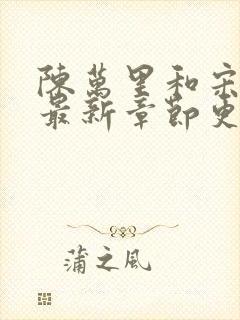 陳萬里和宋
最新章節更
蒲之風